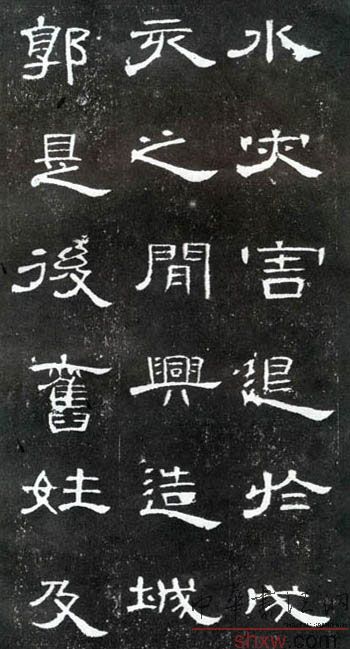 水灾害退於戌
亥之閒興造城
郭是後舊姓及
中华书法网
shxw.com